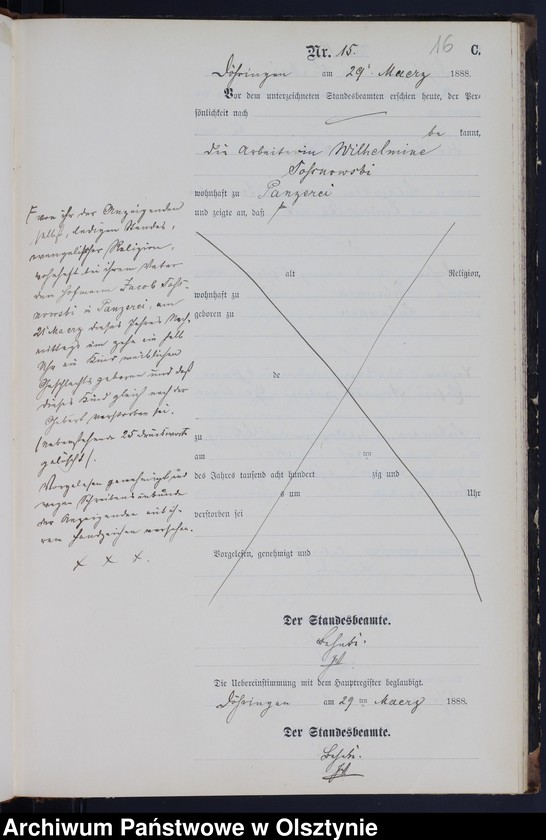 16
Nr. 15. C.
Döhringen am 29t Maerz 1888.
Vor dem unterzeichneten Standesbeamten erschien heute, der Per-
sönlichkeit nach
be kannt,
die Arbeiterin Wilhelmine
wohnhaft zu Panzerei
und zeigte an, daß
von ihr der Anzeigenden
selbst, ledigen Standes,
evangelischer Religion,
wohnhaft bei ihrem Vater
dem Hofmann Jacob
zu Panzerei, am
Maerz dieses Jahres Nach-
mittags um zehn ein halb
Uhr ein Kind weiblichen
Geschlechts geboren und daß
dieses Kind gleich nach der
Geburt verstorben sei.
(Nebenstehende 25 Druckworte
gelöscht).
Vorgelesen genehmigt und
wegen Schreibensunkunde
der Anzeigenden mit ih-
rem Handzeichen versehen.
x x x.
alt Religion,
wohnhaft zu
geboren zu
de
zu
am ten
des Jahres tausend acht hundert zig und
s um Uhr
verstorben sei
Vorgelesen, genehmigt und
Der Standesbeamte.
Die Uebereinstimmung mit dem Hauptregister beglaubigt.
Döhringen am 29 ten Maerz 1888.
Der Standesbeamte.
Archiwum Państwowe w Olsztynie